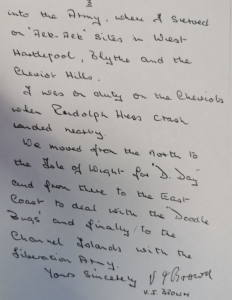 3
into the Army, when I served
on 'Ack-Ack' sites in West
Hartlepool, Blythe and the
Cheviot Hills.
I was on duty on the Cheviots
when Randolph Hess crash
landed nearby.
We moved from the North to
the Isle of Wight for 'D. Day'
and from there to the East
Coast to deal with the 'Doodle
Bugs' and finally to the
Channel Islands with the
Liberation Army.
Yours Sincerely V J Brown
V.J. BROWN